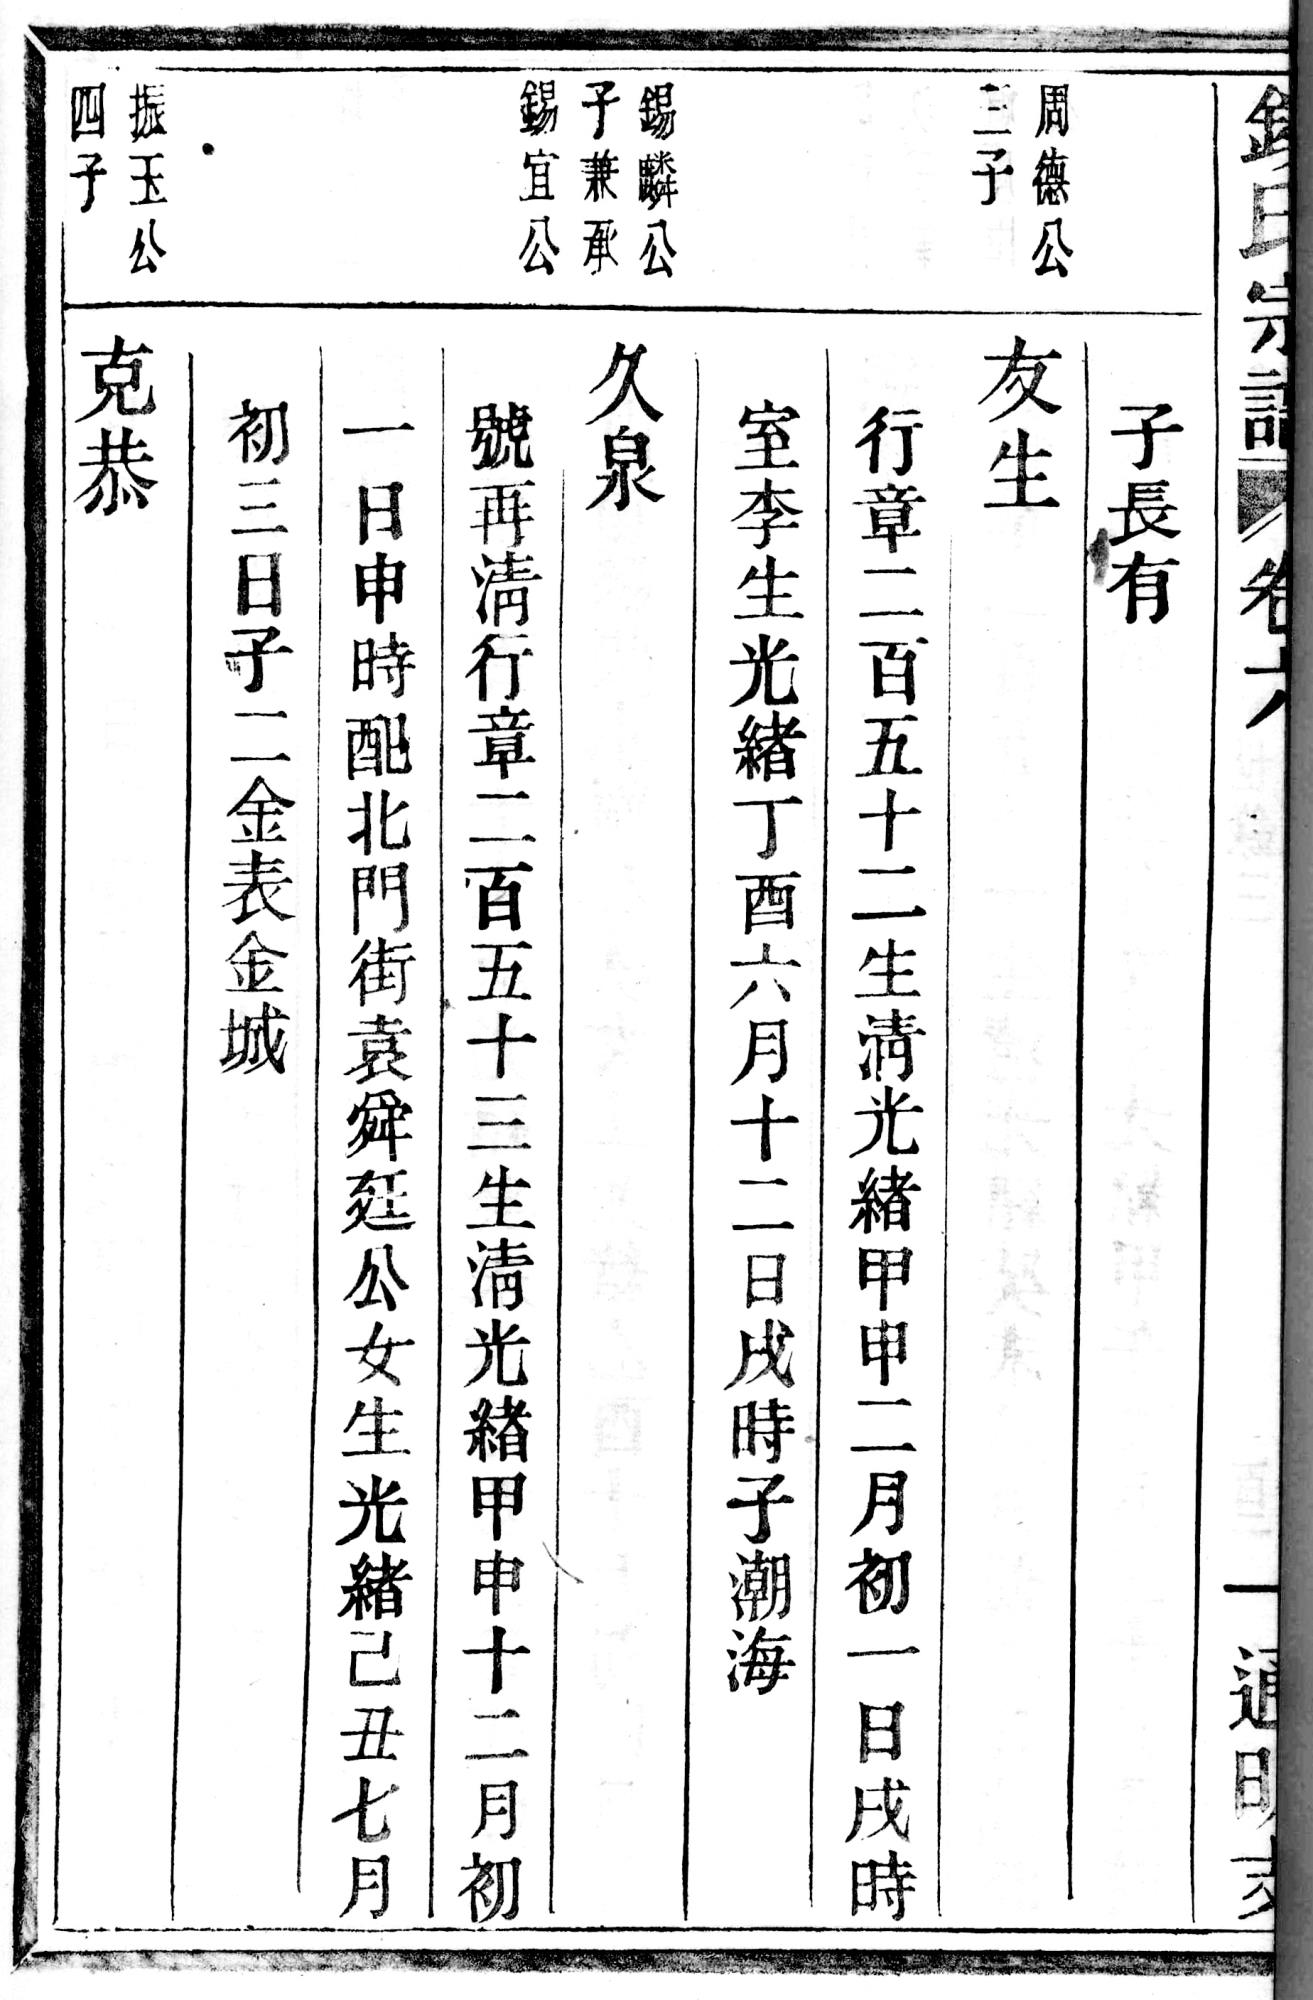 錢氏宗譜 卷六 一 通明支
子長有
周德公
三子
友生
行章二百五十二生淸光緖甲申二月初一日戌時
室李生光緖丁酉六月十二日戌時子潮海
錫麟公
子兼承
錫宜公
久泉
號再淸行章二百五十三生淸光緖甲申十二月初
一日申時配北門街袁舜廷公女生光緖己丑七月
初三日子二金表金城
振玉公
四子
克恭